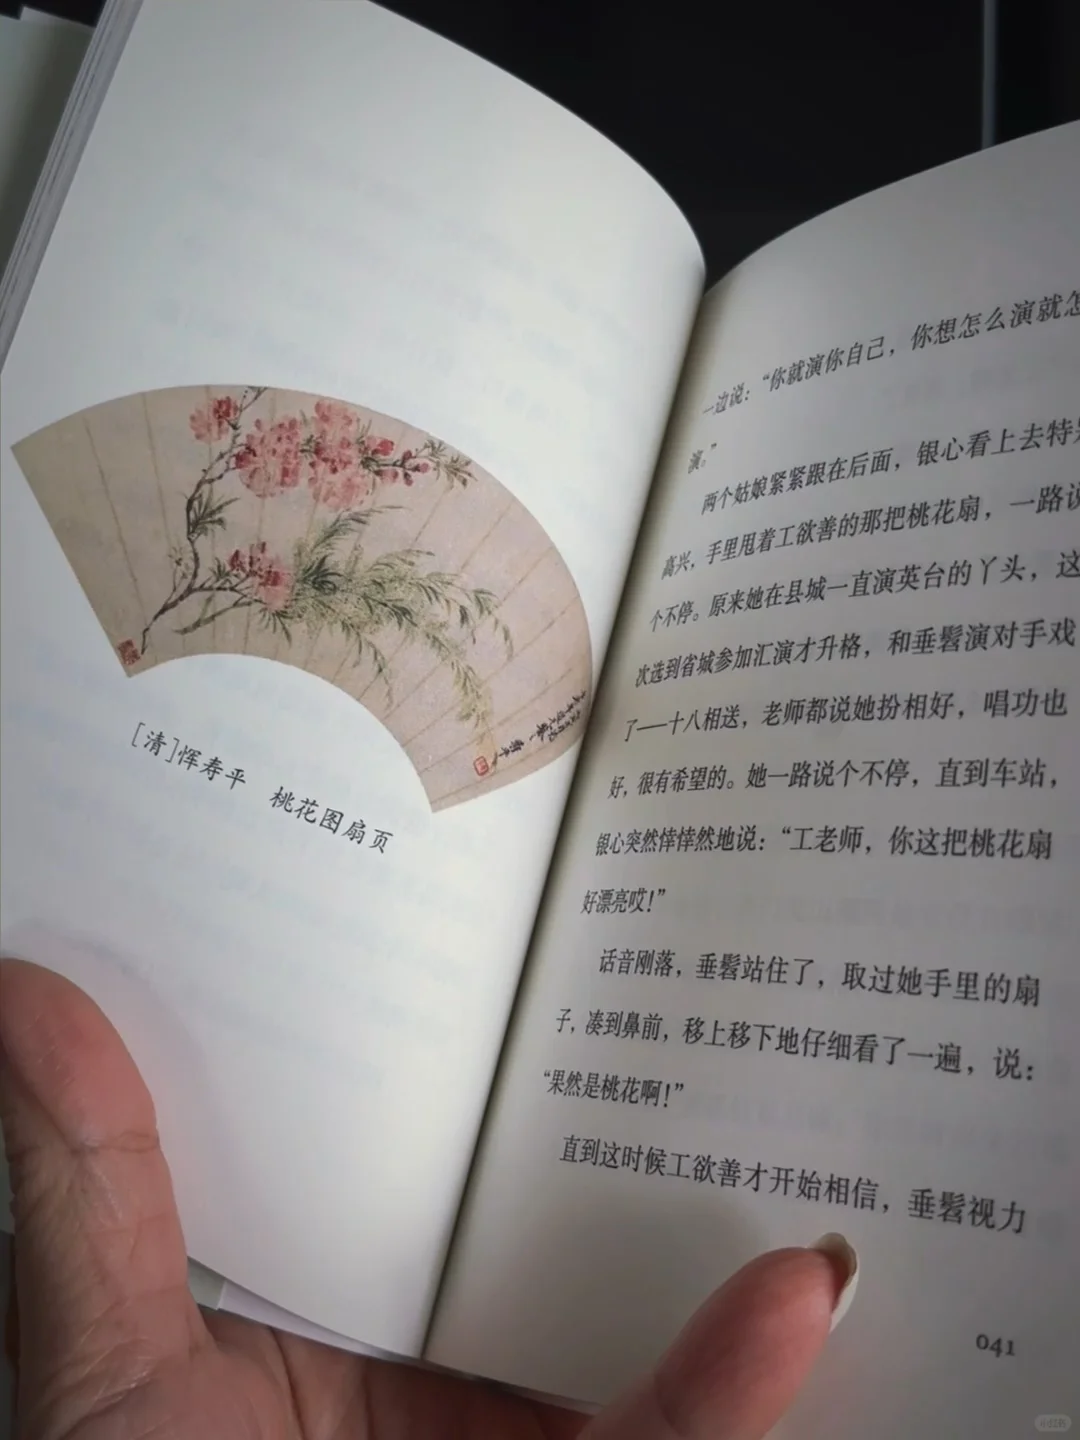 [清]恽寿平 桃花图扇页
一边说：“你就演你自己，你想怎么演就怎
演。”
两个姑娘紧紧跟在后面，银心看上去特别
高兴，手里甩着工欲善的那把桃花扇，一路说
个不停。原来她在县城一直演英台的丫头，这
次选到省城参加汇演才升格，和垂髫演对手戏
了——十八相送，老师都说她扮相好，唱功也
好，很有希望的。她一路说个不停，直到车站，
银心突然悻悻然地说：“工老师，你这把桃花扇
好漂亮哎！”
话音刚落，垂髫站住了，取过她手里的扇
子，凑到鼻前，移上移下地仔细看了一遍，说：
“果然是桃花啊！”
直到这时候工欲善才开始相信，垂髫视力
041